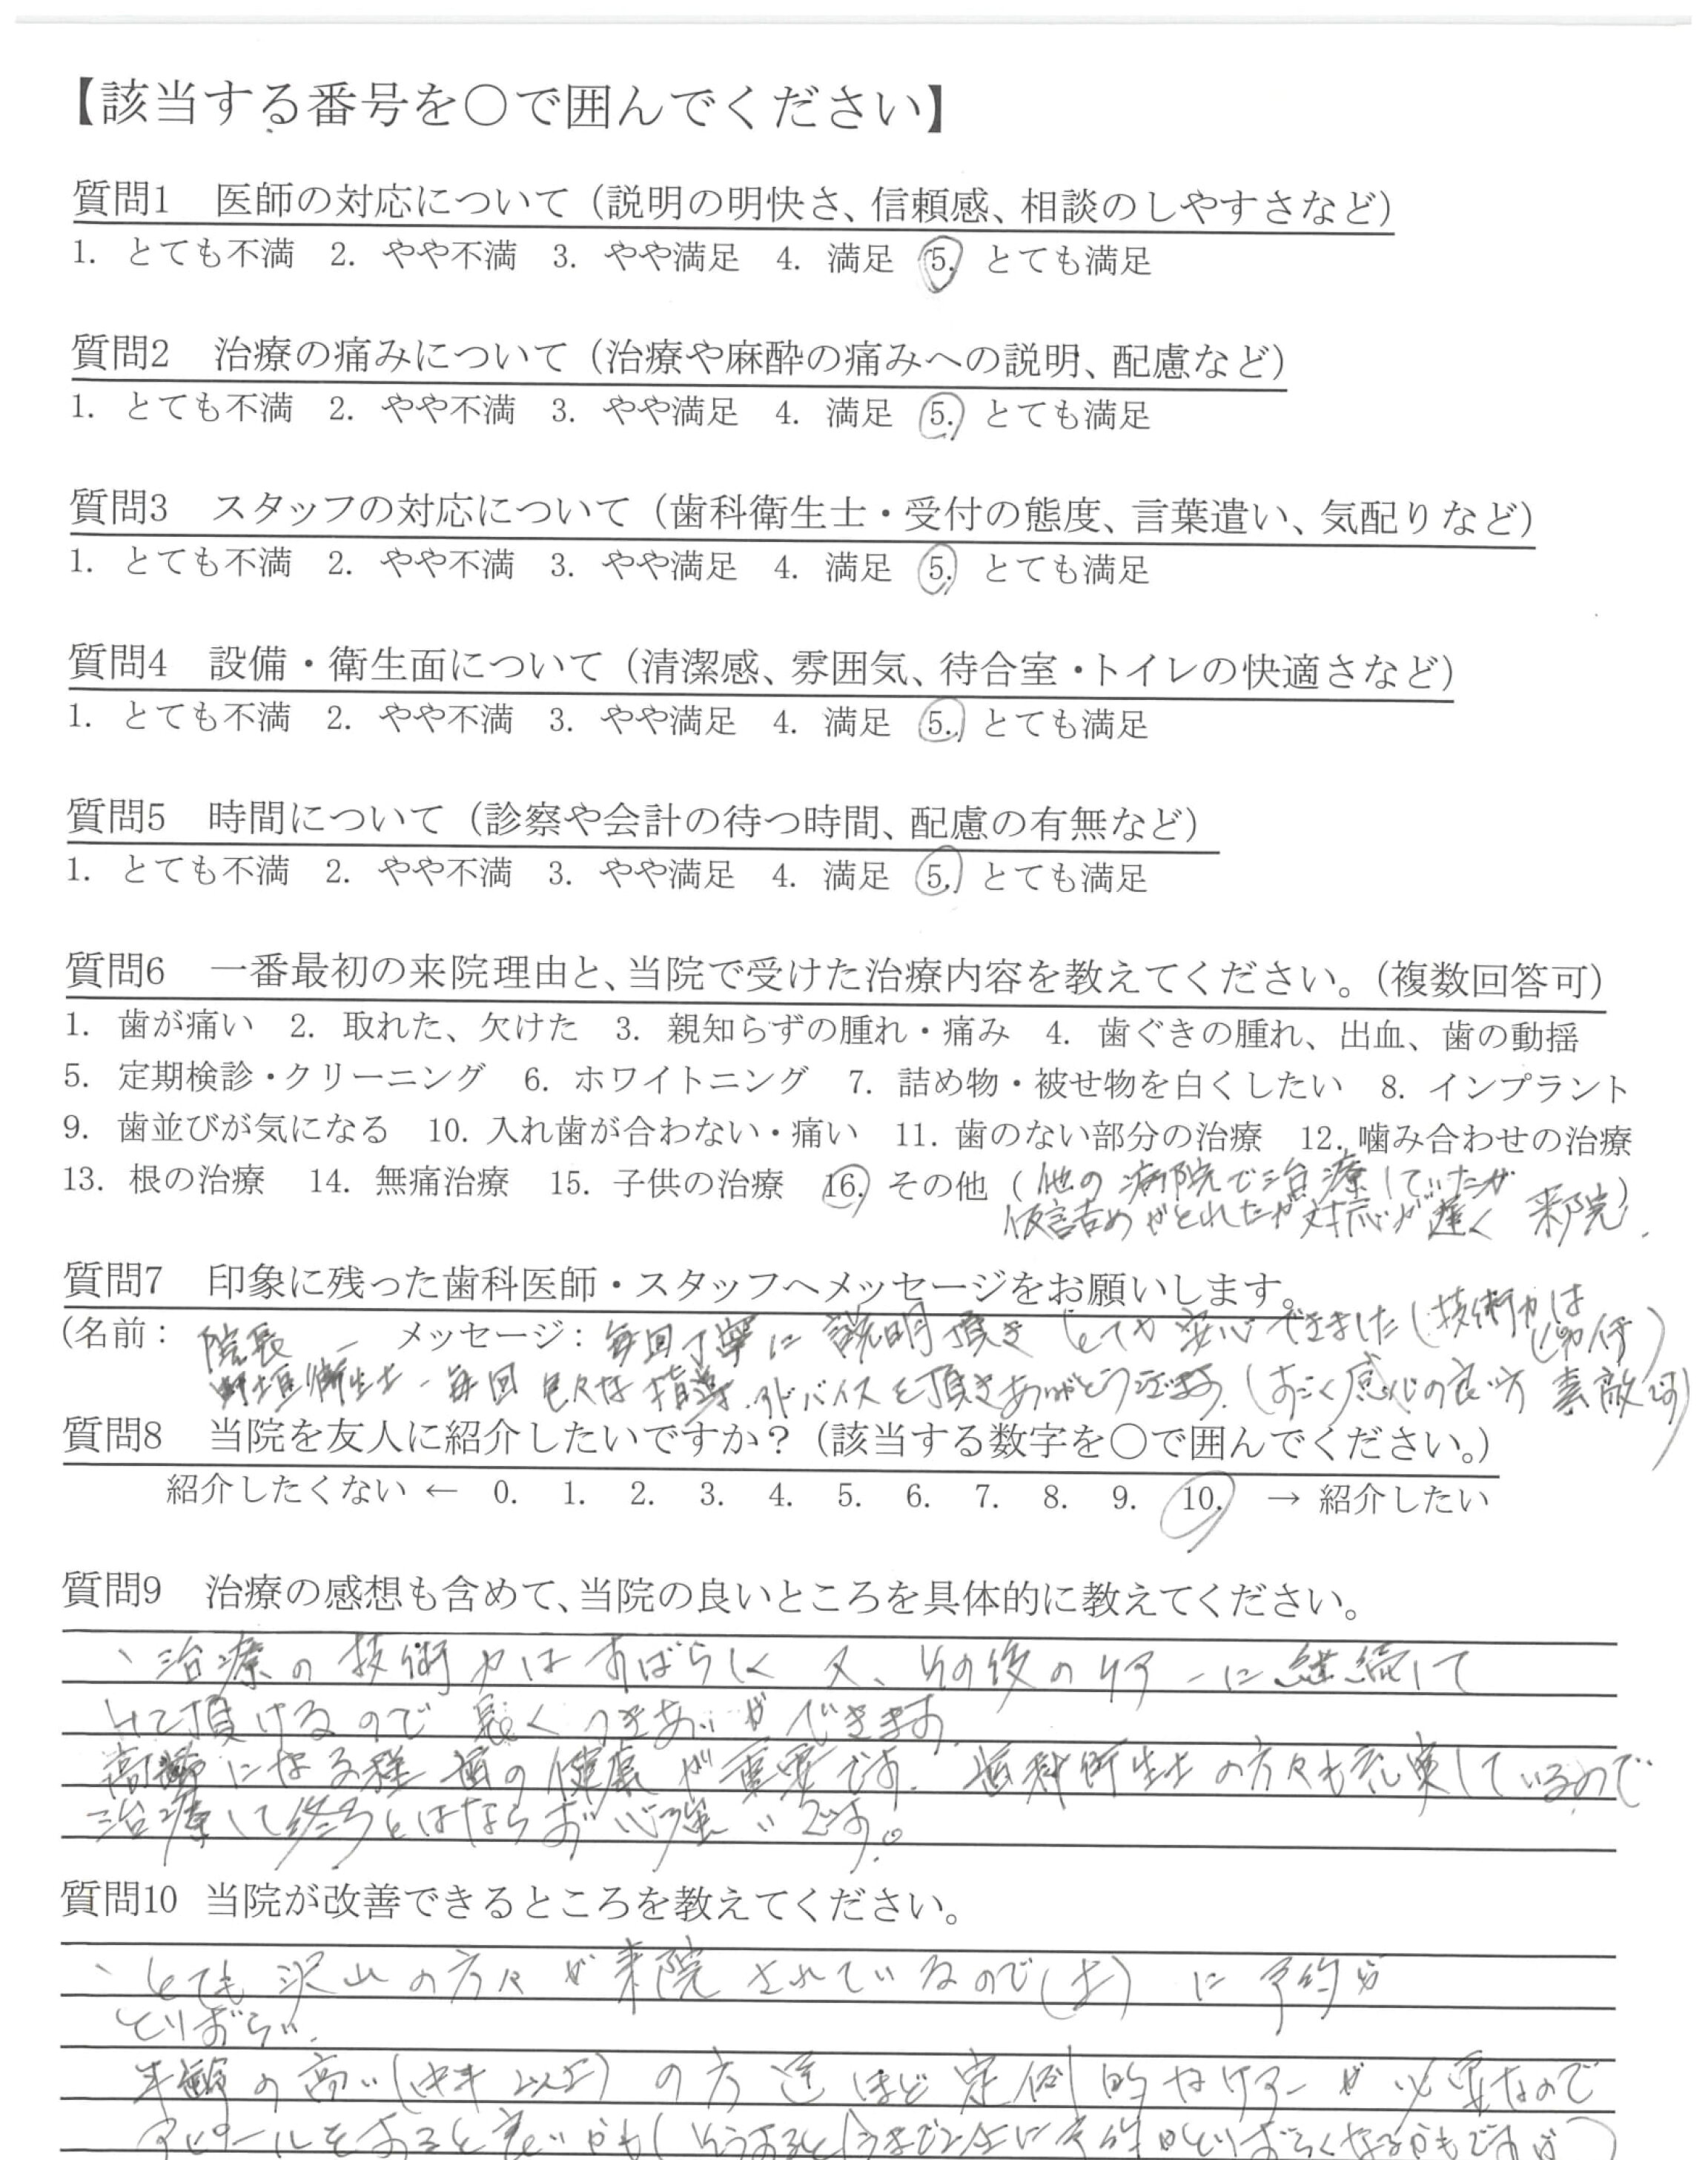 【該当する番号を○で囲んでください】
質問1 医師の対応について（説明の明快さ、信頼感、相談のしやすさなど）
1. とても不満 2. やや不満 3. やや満足 4. 満足 5. とても満足
質問2 治療の痛みについて（治療や麻酔の痛みへの説明、配慮など）
1. とても不満 2. やや不満 3. やや満足 4. 満足 5. とても満足
質問3 スタッフの対応について（歯科衛生士・受付の態度、言葉遣い、気配りなど）
1. とても不満 2. やや不満 3. やや満足 4. 満足 5. とても満足
質問4 設備・衛生面について（清潔感、雰囲気、待合室・トイレの快適さなど）
1. とても不満 2. やや不満 3. やや満足 4. 満足 5. とても満足
質問5 時間について（診察や会計の待つ時間、配慮の有無など）
1. とても不満 2. やや不満 3. やや満足 4. 満足 5. とても満足
質問6 一番最初の来院理由と、当院で受けた治療内容を教えてください。（複数回答可）
1. 歯が痛い 2. 取れた、欠けた 3. 親知らずの腫れ・痛み 4. 歯ぐきの腫れ、出血、歯の動揺
5. 定期検診・クリーニング 6. ホワイトニング 7. 詰め物・被せ物を白くしたい 8. インプラント
9. 歯並びが気になる 10. 入れ歯が合わない・痛い 11. 歯のない部分の治療 12. 噛み合わせの治療
13. 根の治療 14. 無痛治療 15. 子供の治療 16. その他（他の病院で治療していたが
仮詰めがとれたが対応が遅く 来院）
質問7 印象に残った歯科医師・スタッフへメッセージをお願いします。
（名前： 院長 ー メッセージ：毎回丁寧に説明頂き とても安心できました（技術力は
衛生士 - 毎回 色々な指導、アドバイスを頂きありがとうございます。（すごく感じの良い方 素敵です）
質問8 当院を友人に紹介したいですか？（該当する数字を○で囲んでください。）
紹介したくない ← 0. 1. 2. 3. 4. 5. 6. 7. 8. 9. 10. → 紹介したい
質問9 治療の感想も含めて、当院の良いところを具体的に教えてください。
、治療の技術力はすばらしく 又、その後のケアーに継続して
して頂けるので 長くつきあいができます。
高齢になる程 歯の健康が重要です。歯科衛生士の方々も充実しているので
治療して終りとはならず心強いです。
質問10 当院が改善できるところを教えてください。
、とても沢山の方々が来院されているので（土）に予約が
とりずらい。
年齢の高い（中年以上）の方達ほど定例的なケアーが必要なので
アピールをすると良いかも（そうすると今まで以上に予約がとりずらくなるかもですが）